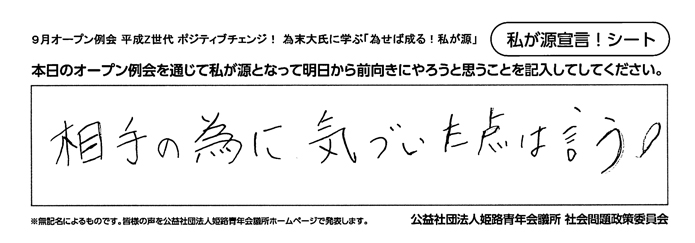 9月オープン例会 平成Z世代 ポジティブチェンジ！ 為末大氏に学ぶ「為せば成る！私が源」
私が源宣言！シート
本日のオープン例会を通じて私が源となって明日から前向きにやろうと思うことを記入してしてください。
相手の為に 気づいた点は言う！
※無記名によるものです。皆様の声を公益社団法人姫路青年会議所ホームページで発表します。
公益社団法人姫路青年会議所 社会問題政策委員会